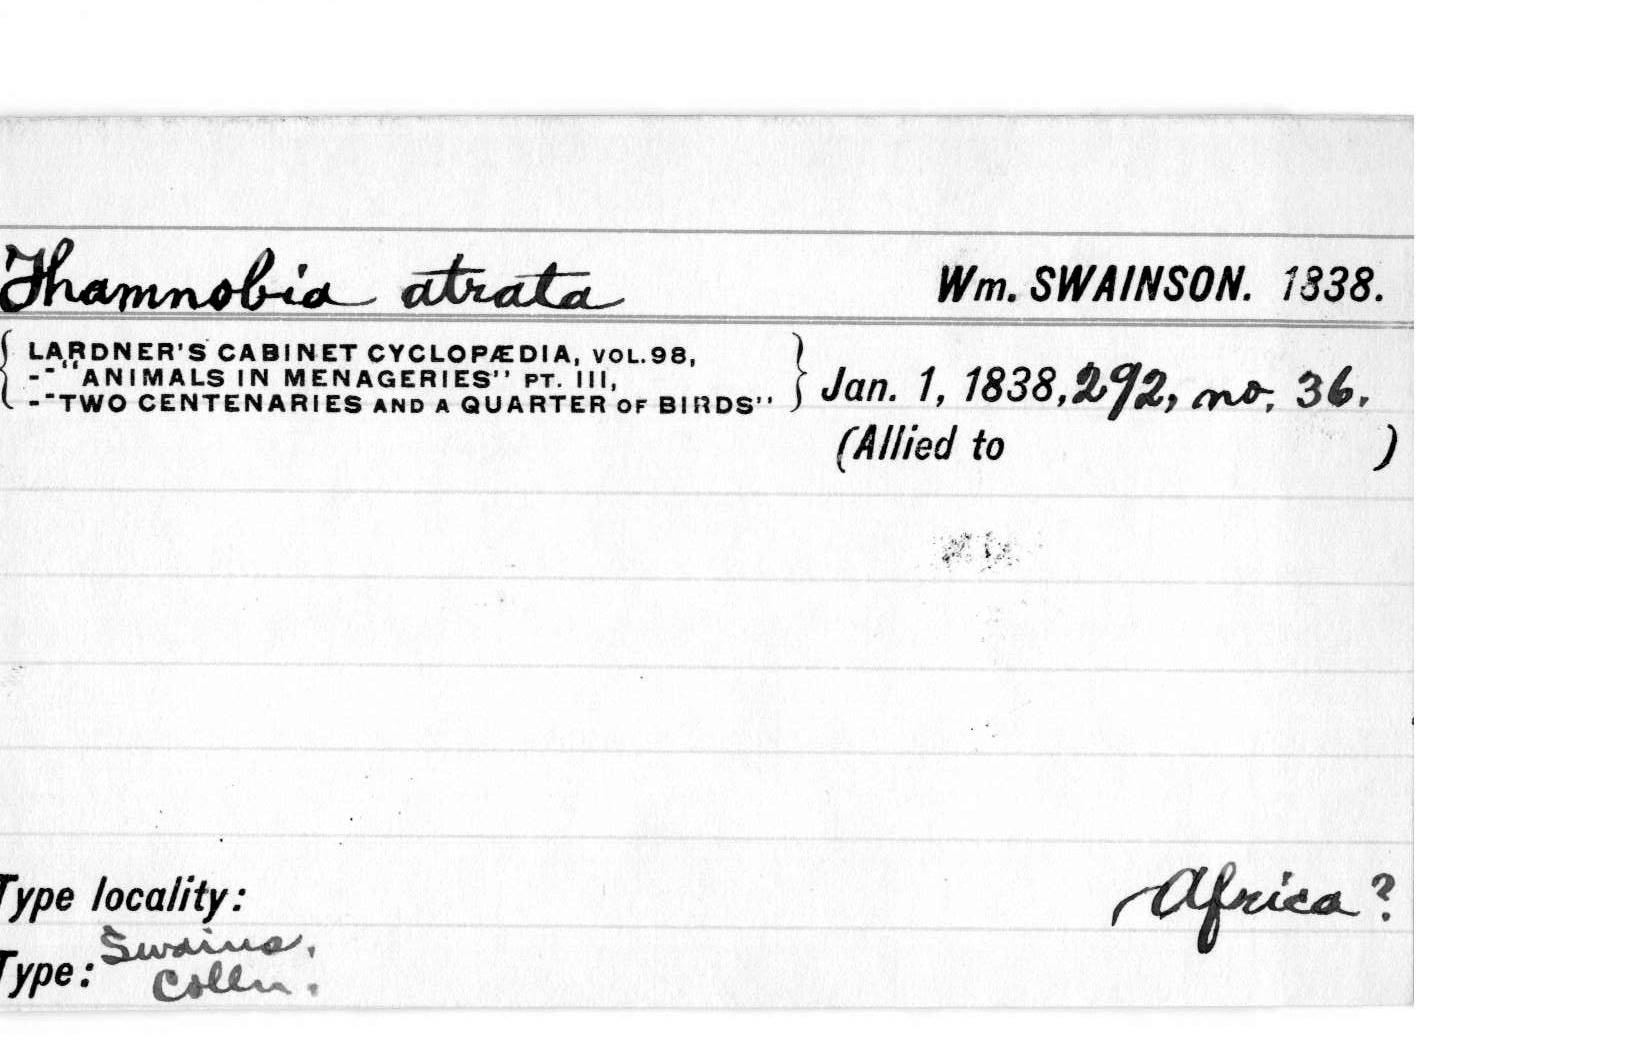 Thamnobia atrata Wm. SWAINSON. 1838.
LARDNER'S CABINET CYCLOPÆDIA, VOL.98,
--"ANIMALS IN MENAGERIES" PT. III,
--"TWO CENTENARIES AND A QUARTER OF BIRDS" Jan. 1, 1838, 292, no. 36.
(Allied to )
Type locality: Africa?
Type: Swains.
Colln.